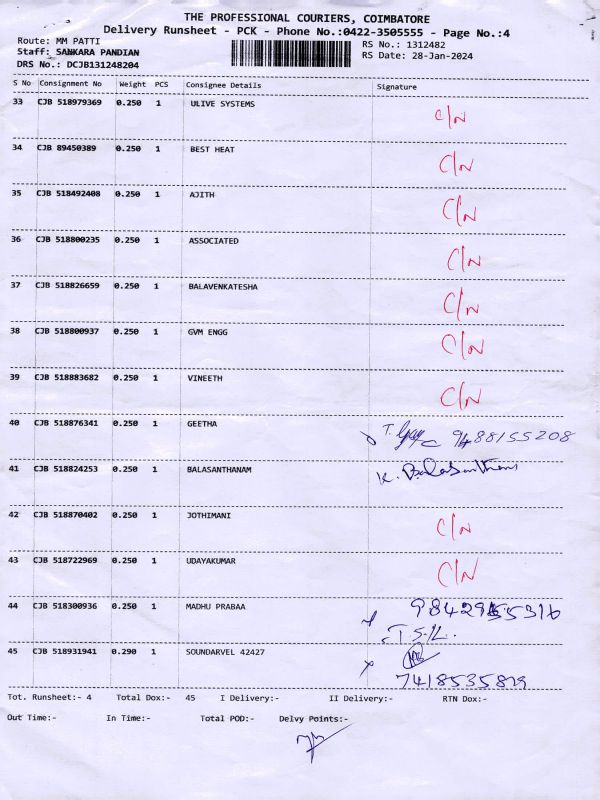 THE PROFESSIONAL COURIERS, COIMBATORE
Delivery Runsheet - PCK - Phone No.:0422-3505555 - Page No.:4
Route: MM PATTI RS No.: 1312482
Staff: SANKARA PANDIAN RS Date: 28-Jan-2024
DRS No.: DCJB131248204
S No Consignment No Weight PCS Consignee Details Signature
33 CJB 518979369 0.250 1 ULIVE SYSTEMS C/N
34 CJB 89450389 0.250 1 BEST HEAT C/N
35 CJB 518492408 0.250 1 AJITH C/N
36 CJB 518800235 0.250 1 ASSOCIATED C/N
37 CJB 518826659 0.250 1 BALAVENKATESHA C/N
38 CJB 518800937 0.250 1 GVM ENGG C/N
39 CJB 518883682 0.250 1 VINEETH C/N
40 CJB 518876341 0.250 1 GEETHA 9488155208
41 CJB 518824253 0.250 1 BALASANTHANAM K. Balasanthanam
42 CJB 518870402 0.250 1 JOTHIMANI C/N
43 CJB 518722969 0.250 1 UDAYAKUMAR C/N
44 CJB 518300936 0.250 1 MADHU PRABAA
45 CJB 518931941 0.290 1 SOUNDARVEL 42427
Tot. Runsheet:- 4 Total Dox:- 45 I Delivery:- II Delivery:- RTN Dox:-
Out Time:- In Time:- Total POD:- Delvy Points:-